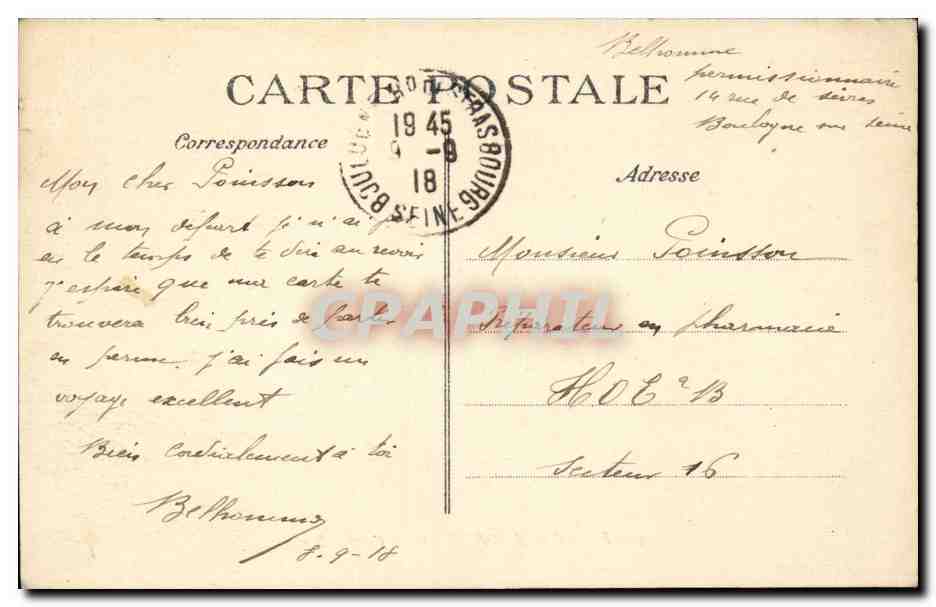 Belhomme
permissionnaire
14 rue de sèvres
Boulogne sur seine
CARTE POSTALE
STRASBOURG
19 45
-9
18
SEINE
Correspondance
Mon cher Poinsson
à mon départ je n'ai
eu le temps de te dire au revoir
j'espère que ma carte te
trouvera bien près de partir
en perme. j'ai fais un
voyage excellent
Bien cordialement à toi
Belhomme
8-9-18
Adresse
Monsieur Poinsson
Préparateur en pharmacie
HOE 2 B
Secteur 16
CPAPHIL